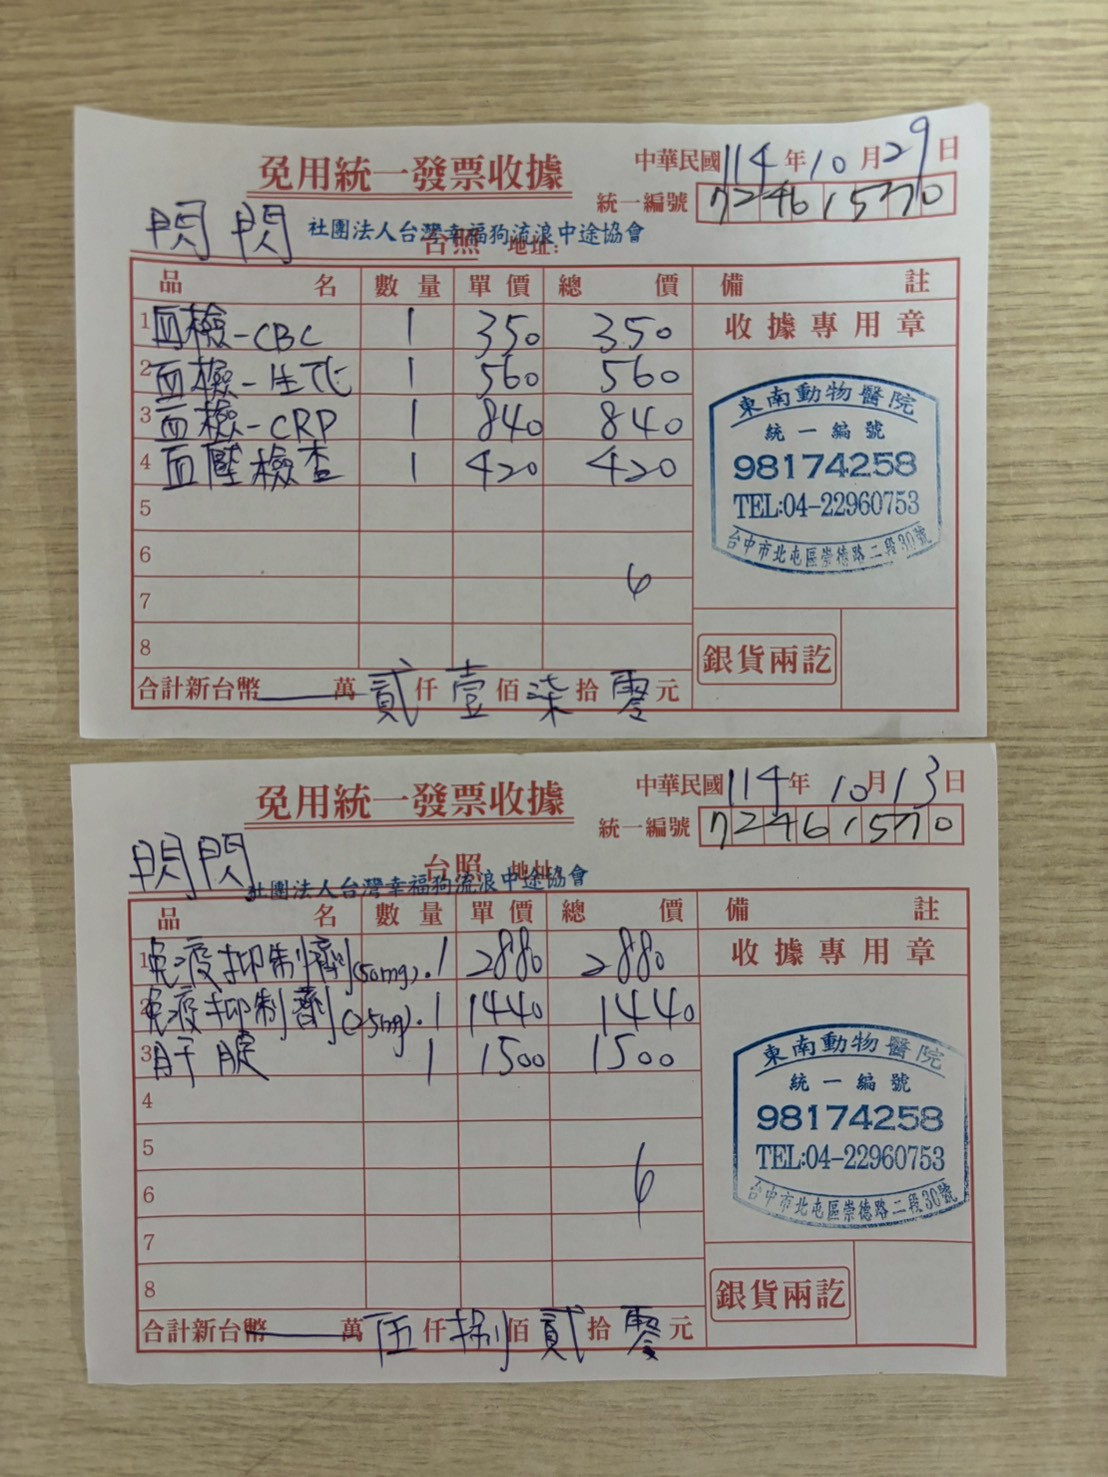 免用統一發票收據
中華民國114年10月29日
統一編號 72461570
閃閃 社團法人台灣幸福狗流浪中途協會
台照 地址:
品名 數量 單價 總價 備註
1 血檢-CBC 1 350 350 收據專用章
2 血檢-生化 1 560 560
3 血檢-CRP 1 840 840
4 血壓檢查 1 420 420
5
6
7
8
東南動物醫院
統一編號
98174258
TEL:04-22960753
台中市北屯區崇德路二段30號
銀貨兩訖
合計新台幣 萬貳仟壹佰柒拾零元
免用統一發票收據
中華民國114年10月13日
統一編號 72461570
閃閃 台照 地址
社團法人台灣幸福狗流浪中途協會
品名 數量 單價 總價 備註
1 免疫抑制劑(50mg). 1 2880 2880 收據專用章
2 免疫抑制劑(25mg). 1 1440 1440
3 肝腚 1 1500 1500
4
5
6
7
8
東南動物醫院
統一編號
98174258
TEL:04-22960753
台中市北屯區崇德路二段30號
銀貨兩訖
合計新台幣 萬伍仟捌佰貳拾零元